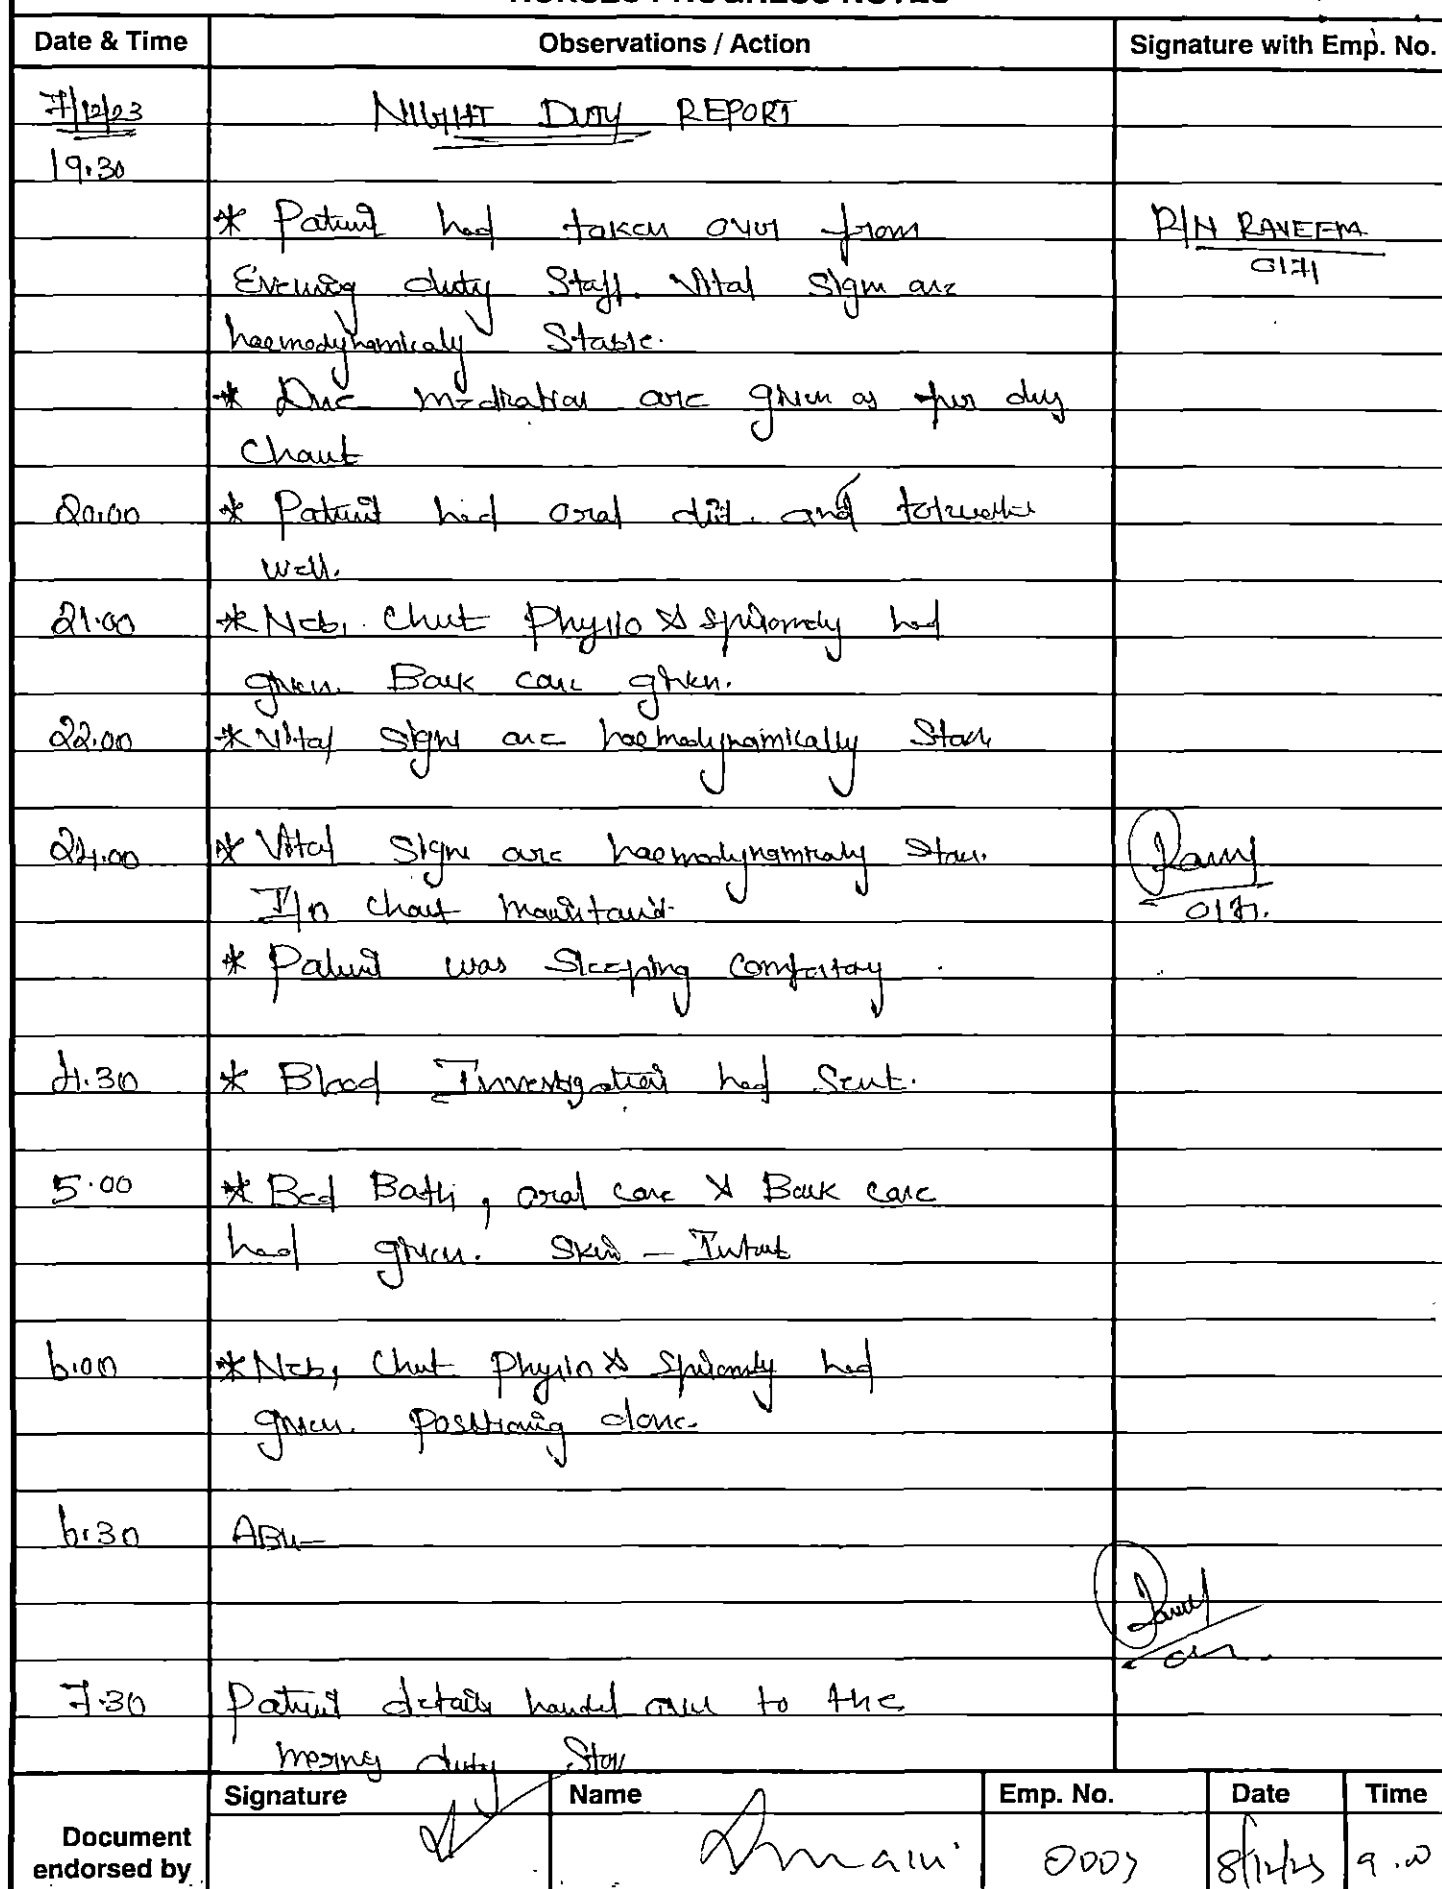 NURSES PROGRESS NOTES
Date & Time Observations / Action Signature with Emp. No.
7/12/23 NIGHT DUTY REPORT
19.30
* Patient had taken over from R/N RAVEENA
Evening duty Staff. Vital Sign are 0171
haemodynamicaly Stable.
* Due medication are given as per drug
Chart
20.00 * Patient had oral diet. and tolerate
well.
21.00 * Neb, Chest Physio & spirometry had
given. Back care given.
22.00 * Vital signs are haemodynamically Stable
24.00 * Vital Signs are haemodynamicaly Stable.
I/O chart maintained. 0171.
* Patient was Sleeping Comfortay
4.30 * Blood Investigation had Sent.
5.00 * Bed Bath, oral care & Back care
had given. Skin – Intact
6.00 * Neb, Chest Physio & Spirometry had
given. Positioning done.
6.30 ABG –
7.30 Patient details handed over to the
morning duty Staff
Signature Name Emp. No. Date Time
Document
endorsed by 8/12/23 9.00